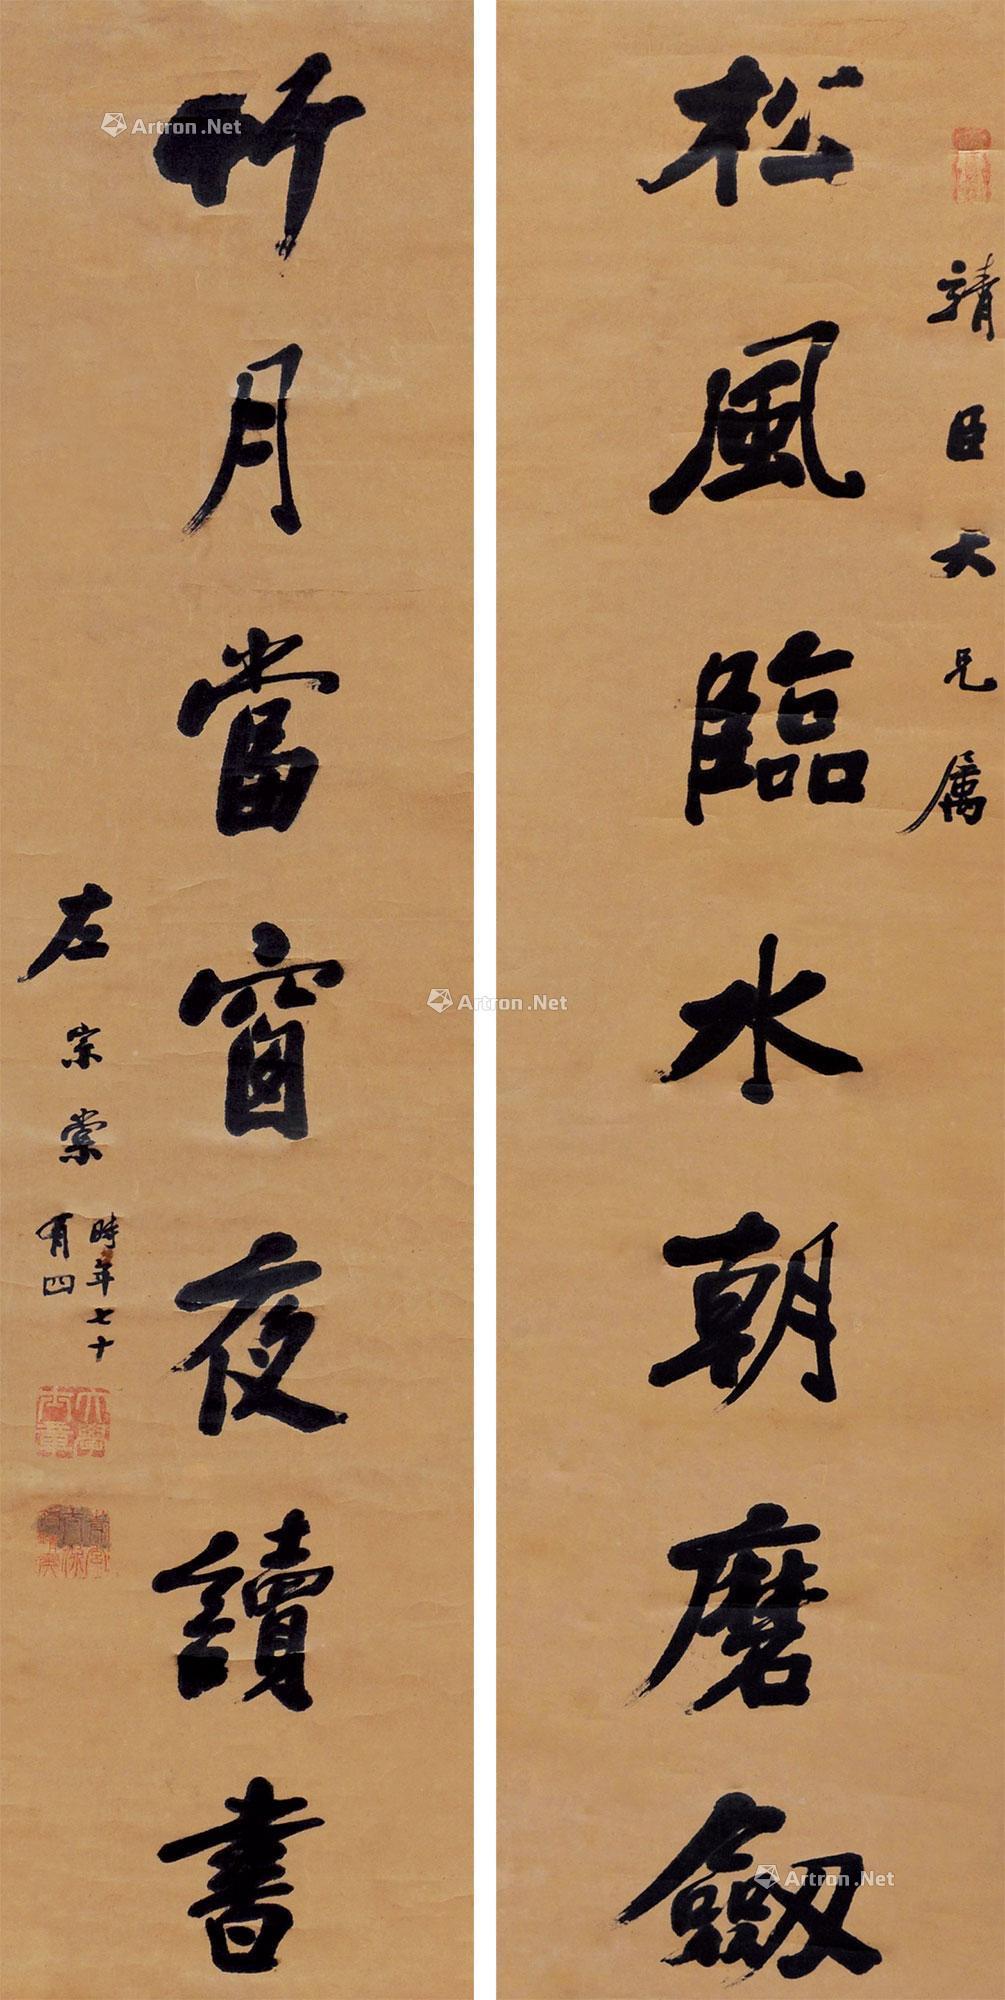 靖臣大兄属
松風臨水朝磨劔
竹月當窗夜讀書
左宗棠
時年七十
有四
大學士章
Artron.Net
Artron.Net
Artron.Net